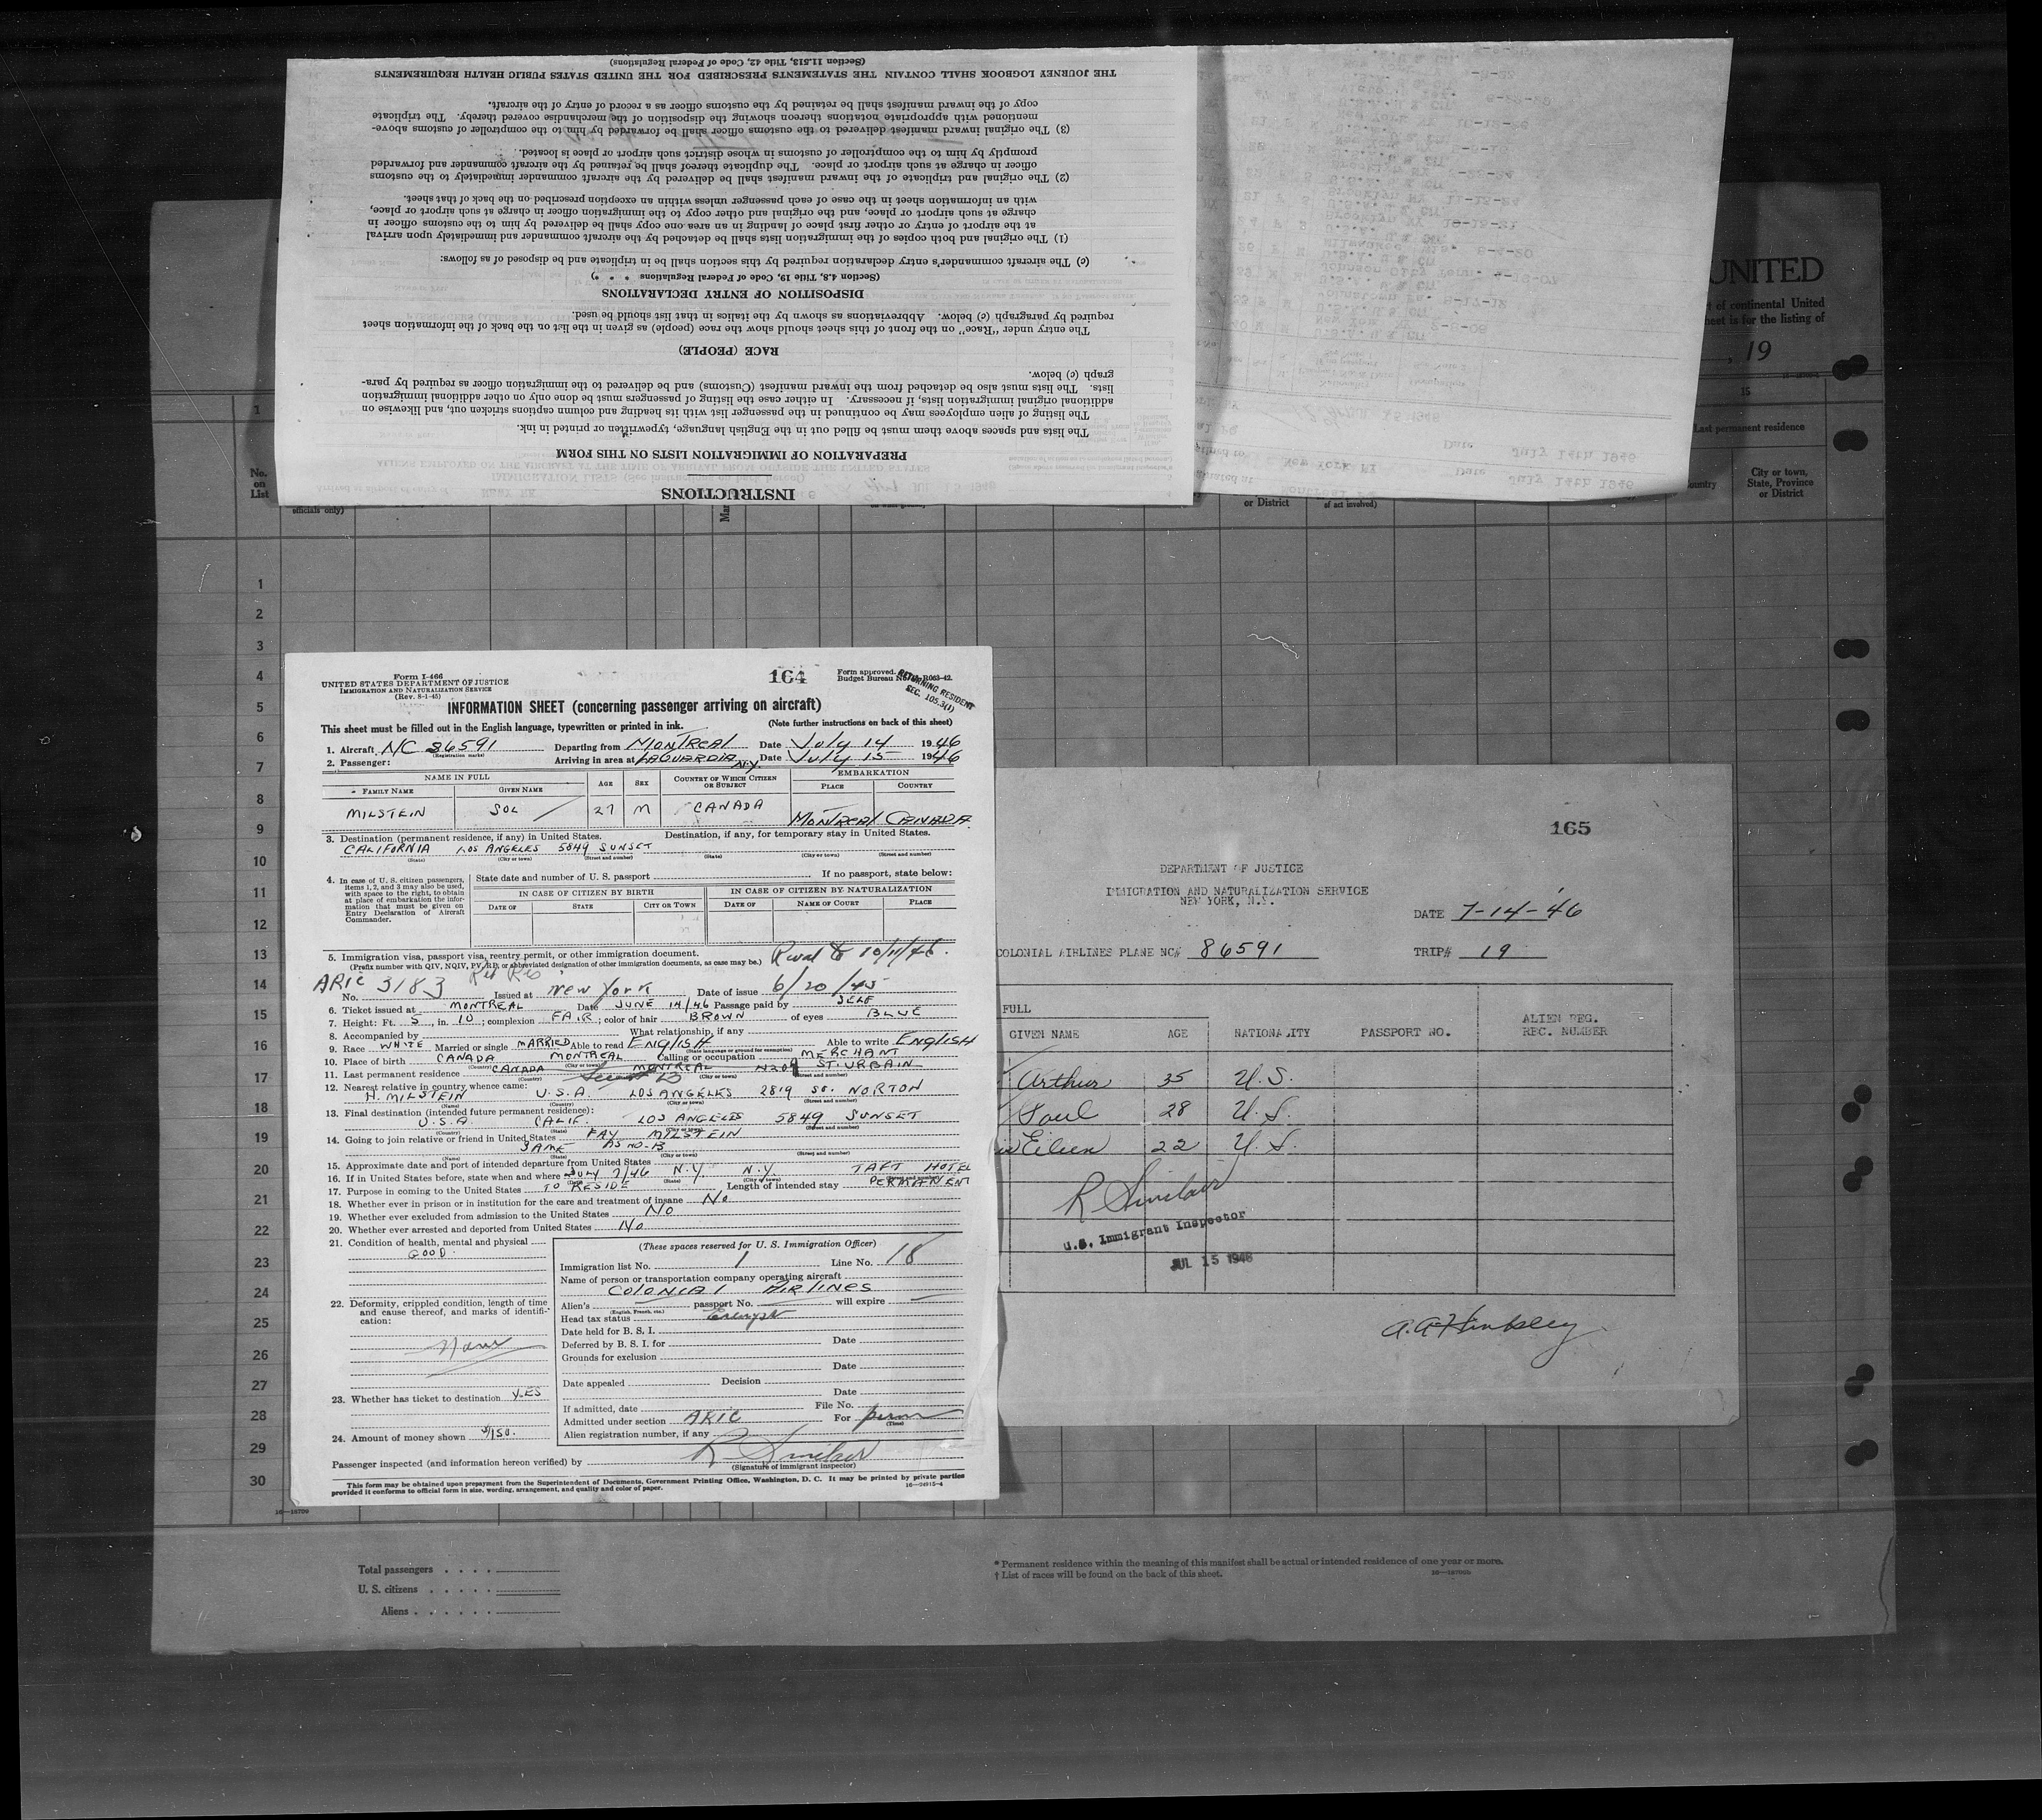 INSTRUCTIONS
PREPARATION OF IMMIGRATION LISTS ON THIS FORM
The lists and spaces above them must be filled out in the English language, typewritten or printed in ink.
The listing of alien employees may be continued in the passenger list with its heading and column captions stricken out, and likewise on
additional original immigration lists, if necessary. In either case the listing of passengers must be done only on other additional immigration
lists. The lists must also be detached from the inward manifest (Customs) and be delivered to the immigration officer as required by para-
graph (c) below.
RACE (PEOPLE)
The entry under "Race" on the front of this sheet should show the race (people) as given in the list on the back of the information sheet
required by paragraph (c) below. Abbreviations as shown by the italics in that list should be used.
DISPOSITION OF ENTRY DECLARATIONS
(Section 4.8, Title 19, Code of Federal Regulations * * *)
(c) The aircraft commander's entry declaration required by this section shall be in triplicate and be disposed of as follows:
(1) The original and both copies of the immigration lists shall be detached by the aircraft commander and immediately upon arrival
at the airport of entry or other first place of landing in an area one copy shall be delivered by him to the customs officer in
charge at such airport or place, and the original and other copy to the immigration officer in charge at such airport or place,
with an information sheet in the case of each passenger unless within an exception prescribed on the back of that sheet.
(2) The original and triplicate of the inward manifest shall be delivered by the aircraft commander immediately to the customs
officer in charge at such airport or place. The duplicate thereof shall be retained by the aircraft commander and forwarded
promptly by him to the comptroller of customs in whose district such airport or place is located.
(3) The original inward manifest delivered to the customs officer shall be forwarded by him to the comptroller of customs above-
mentioned with appropriate notations thereon showing the disposition of the merchandise covered thereby. The triplicate
copy of the inward manifest shall be retained by the customs officer as a record of entry of the aircraft.
THE JOURNEY LOGBOOK SHALL CONTAIN THE STATEMENTS PRESCRIBED FOR THE UNITED STATES PUBLIC HEALTH REQUIREMENTS
(Section 11.513, Title 42, Code of Federal Regulations)
UNITED
of continental United
sheet is for the listing of
, 19
15
Last permanent residence
City or town,
State, Province
or District
No.
on
List
officials only)
or District
of act involved)
1
2
3
4
5
6
7
8
9
10
11
12
13
14
15
16
17
18
19
20
21
22
23
24
25
26
27
28
29
30
Form I-466
UNITED STATES DEPARTMENT OF JUSTICE
IMMIGRATION AND NATURALIZATION SERVICE
(Rev. 8-1-45)
164
Form approved.
Budget Bureau No. R063-42.
RETURNING RESIDENT
SEC. 105.3(1)
INFORMATION SHEET (concerning passenger arriving on aircraft)
This sheet must be filled out in the English language, typewritten or printed in ink. (Note further instructions on back of this sheet)
1. Aircraft NC 86591 Departing from MONTREAL Date July 14 1946
(Registration marks)
2. Passenger: Arriving in area at LAGUARDIA N.Y. Date July 15 1946
NAME IN FULL AGE SEX COUNTRY OF WHICH CITIZEN OR SUBJECT EMBARKATION
FAMILY NAME GIVEN NAME PLACE COUNTRY
MILSTEIN SOL 27 M CANADA MONTREAL CANADA
3. Destination (permanent residence, if any) in United States. Destination, if any, for temporary stay in United States.
CALIFORNIA LOS ANGELES 5849 SUNSET
(State) (City or town) (Street and number) (State) (City or town) (Street and number)
4. In case of U. S. citizen passengers, items 1, 2, and 3 may also be used, with space to the right, to obtain at place of embarkation the information that must be given on Entry Declaration of Aircraft Commander.
State date and number of U. S. passport If no passport, state below:
IN CASE OF CITIZEN BY BIRTH IN CASE OF CITIZEN BY NATURALIZATION
DATE OF STATE CITY OR TOWN DATE OF NAME OF COURT PLACE
5. Immigration visa, passport visa, reentry permit, or other immigration document.
(Prefix number with QIV, NQIV, PV, RP, or abbreviated designation of other immigration documents, as case may be.)
10/11/46.
ARIC 3183
No. Issued at New York Date of issue 6/20/45
6. Ticket issued at MONTREAL Date JUNE 14/46 Passage paid by SELF
7. Height: Ft. 5, in. 10; complexion FAIR; color of hair BROWN of eyes BLUE
8. Accompanied by What relationship, if any
9. Race WHITE Married or single MARRIED Able to read ENGLISH Able to write ENGLISH
(State language or ground for exemption)
10. Place of birth CANADA MONTREAL Calling or occupation MERCHANT
(Country) (City or town)
11. Last permanent residence CANADA MONTREAL 4209 ST. URBAIN
(Country) (City or town) (Street and number)
12. Nearest relative in country whence came:
H. MILSTEIN U.S.A. LOS ANGELES 2819 SO. NORTON
(Name) (Country) (City or town) (Street and number)
13. Final destination (intended future permanent residence):
U.S.A. CALIF. LOS ANGELES 5849 SUNSET
(Country) (State) (City or town) (Street and number)
14. Going to join relative or friend in United States FAY MILSTEIN
SAME AS NO. 13
(Name) (State) (City or town) (Street and number)
15. Approximate date and port of intended departure from United States
16. If in United States before, state when and where JULY 7/46 N.Y. N.Y. TAFT HOTEL
(Date) (State) (City or town) (Street and number)
17. Purpose in coming to the United States TO RESIDE Length of intended stay PERMANENT
18. Whether ever in prison or in institution for the care and treatment of insane No
19. Whether ever excluded from admission to the United States No
20. Whether ever arrested and deported from United States No
21. Condition of health, mental and physical
GOOD.
22. Deformity, crippled condition, length of time
and cause thereof, and marks of identifi-
cation:
None
23. Whether has ticket to destination YES
24. Amount of money shown $150.
(These spaces reserved for U. S. Immigration Officer)
Immigration list No. 1 Line No. 18
Name of person or transportation company operating aircraft
COLONIAL AIRLINES
Alien's passport No. will expire
(English, French, etc.)
Head tax status
Date held for B. S. I.
Deferred by B. S. I. for Date
Grounds for exclusion
Date
Date appealed Decision
Date
If admitted, date File No.
Admitted under section ARIC For perm
(Time)
Alien registration number, if any
Passenger inspected (and information hereon verified) by R Sinclair
(Signature of immigrant inspector)
This form may be obtained upon prepayment from the Superintendent of Documents, Government Printing Office, Washington, D. C. It may be printed by private parties
provided it conforms to official form in size, wording, arrangement, and quality and color of paper.
165
DEPARTMENT OF JUSTICE
IMMIGRATION AND NATURALIZATION SERVICE
NEW YORK, N.Y.
DATE 7-14-46
COLONIAL AIRLINES PLANE NC# 86591 TRIP# 19
FULL
GIVEN NAME AGE NATIONALITY PASSPORT NO. ALIEN REG. REC. NUMBER
Arthur 35 U.S.
Paul 28 U.S.
Eileen 22 U.S.
R Sinclair
U.S. Immigrant Inspector
JUL 15 1946
16—18709
Total passengers
U. S. citizens
Aliens
* Permanent residence within the meaning of this manifest shall be actual or intended residence of one year or more.
† List of races will be found on the back of this sheet.